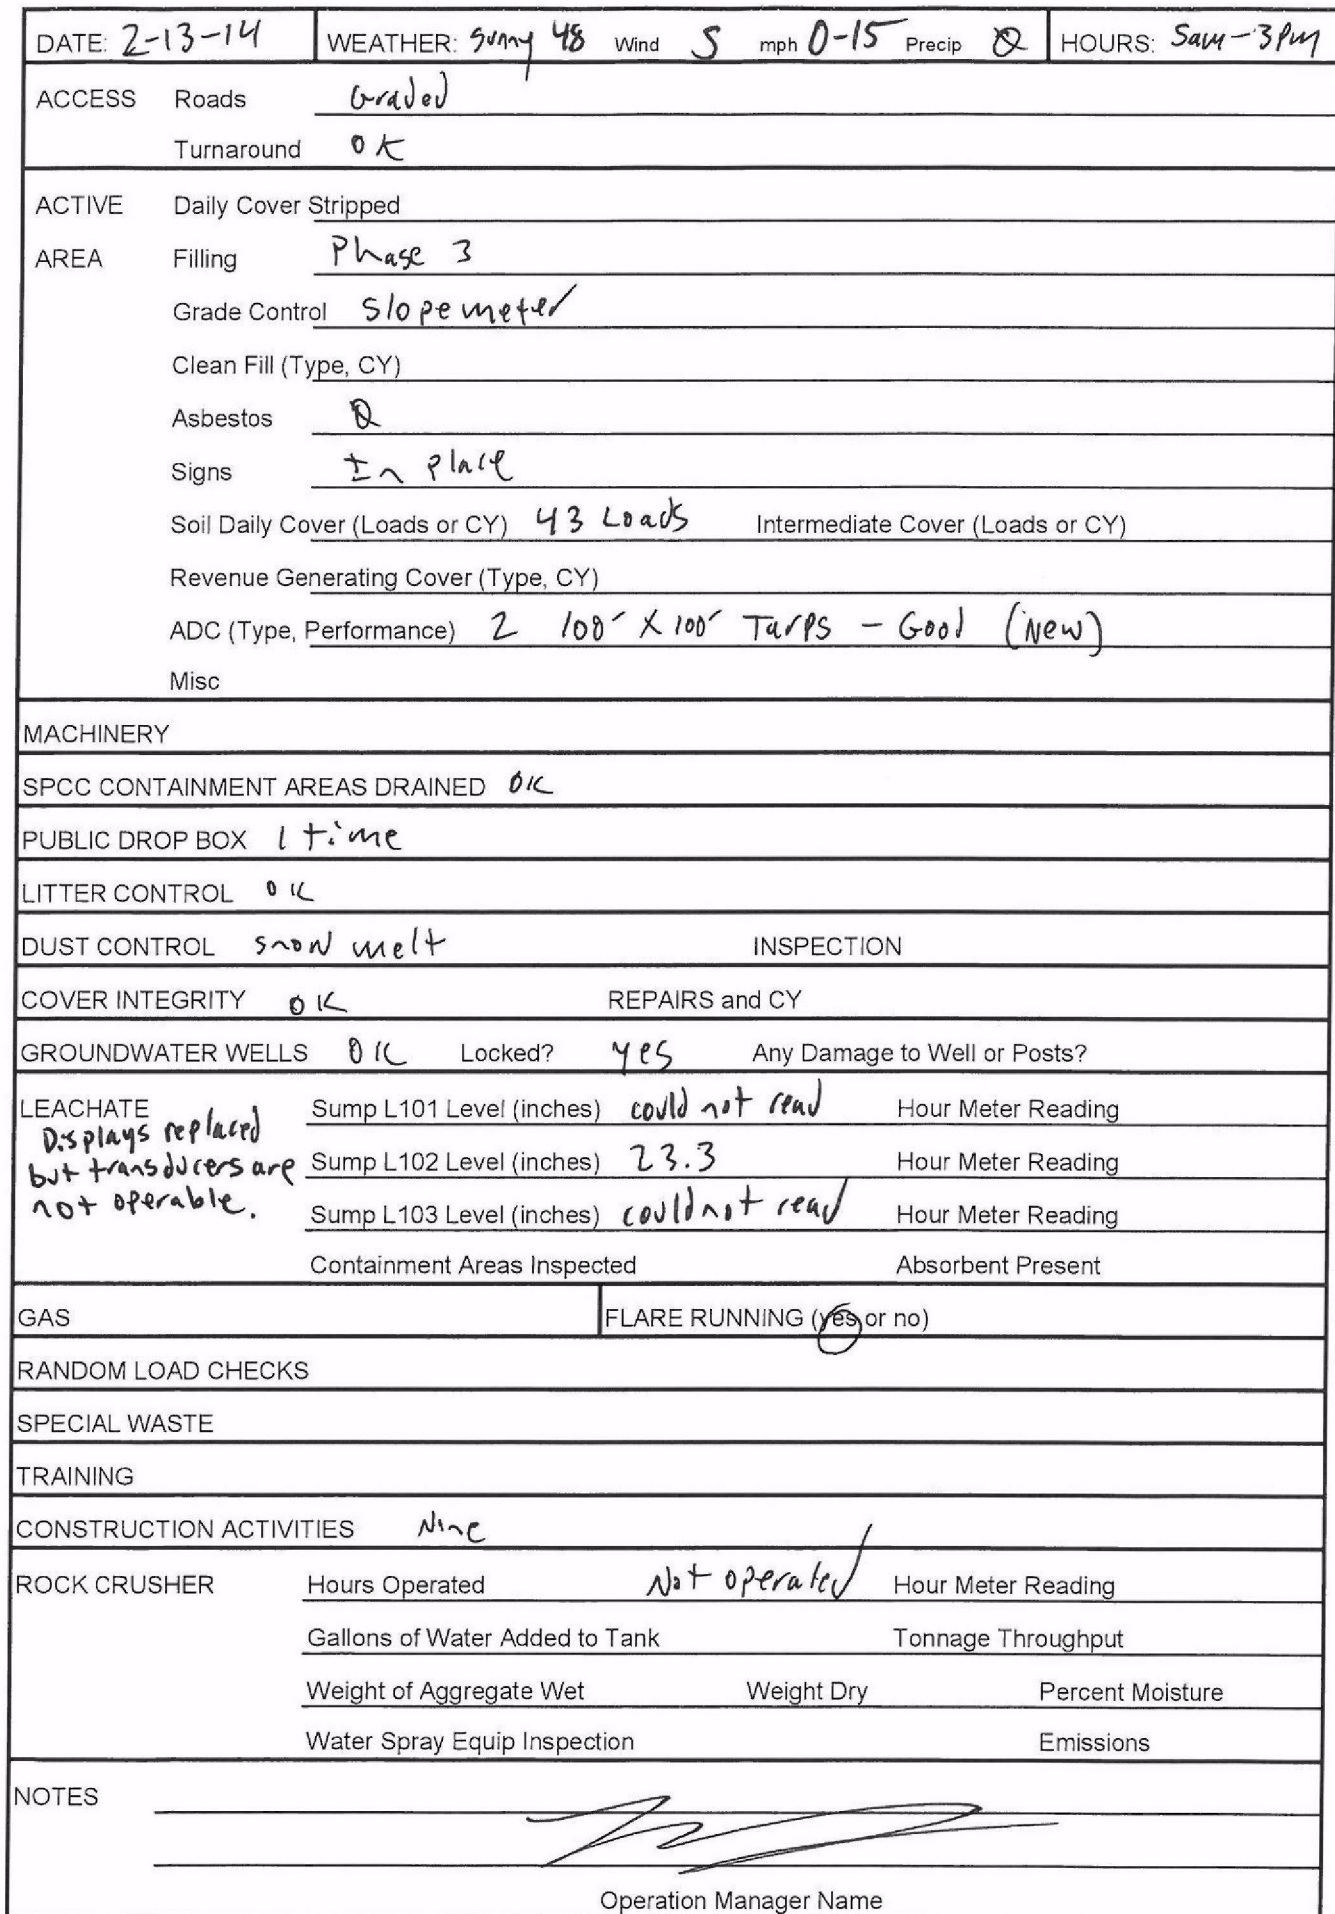 DATE: 2-13-14 WEATHER: Sunny 48 Wind S mph 0-15 Precip Ø HOURS: 5am-3pm
ACCESS Roads Graded
Turnaround OK
ACTIVE Daily Cover Stripped
AREA Filling Phase 3
Grade Control Slopemeter
Clean Fill (Type, CY)
Asbestos Ø
Signs In place
Soil Daily Cover (Loads or CY) 43 Loads Intermediate Cover (Loads or CY)
Revenue Generating Cover (Type, CY)
ADC (Type, Performance) 2 100' X 100' Tarps - Good (New)
Misc
MACHINERY
SPCC CONTAINMENT AREAS DRAINED OK
PUBLIC DROP BOX 1 time
LITTER CONTROL OK
DUST CONTROL snow melt INSPECTION
COVER INTEGRITY OK REPAIRS and CY
GROUNDWATER WELLS OK Locked? yes Any Damage to Well or Posts?
LEACHATE Sump L101 Level (inches) could not read Hour Meter Reading
Displays replaced
but transducers are Sump L102 Level (inches) 23.3 Hour Meter Reading
not operable. Sump L103 Level (inches) could not read Hour Meter Reading
Containment Areas Inspected Absorbent Present
GAS FLARE RUNNING (yes or no)
RANDOM LOAD CHECKS
SPECIAL WASTE
TRAINING
CONSTRUCTION ACTIVITIES None
ROCK CRUSHER Hours Operated Not operated Hour Meter Reading
Gallons of Water Added to Tank Tonnage Throughput
Weight of Aggregate Wet Weight Dry Percent Moisture
Water Spray Equip Inspection Emissions
NOTES
Operation Manager Name